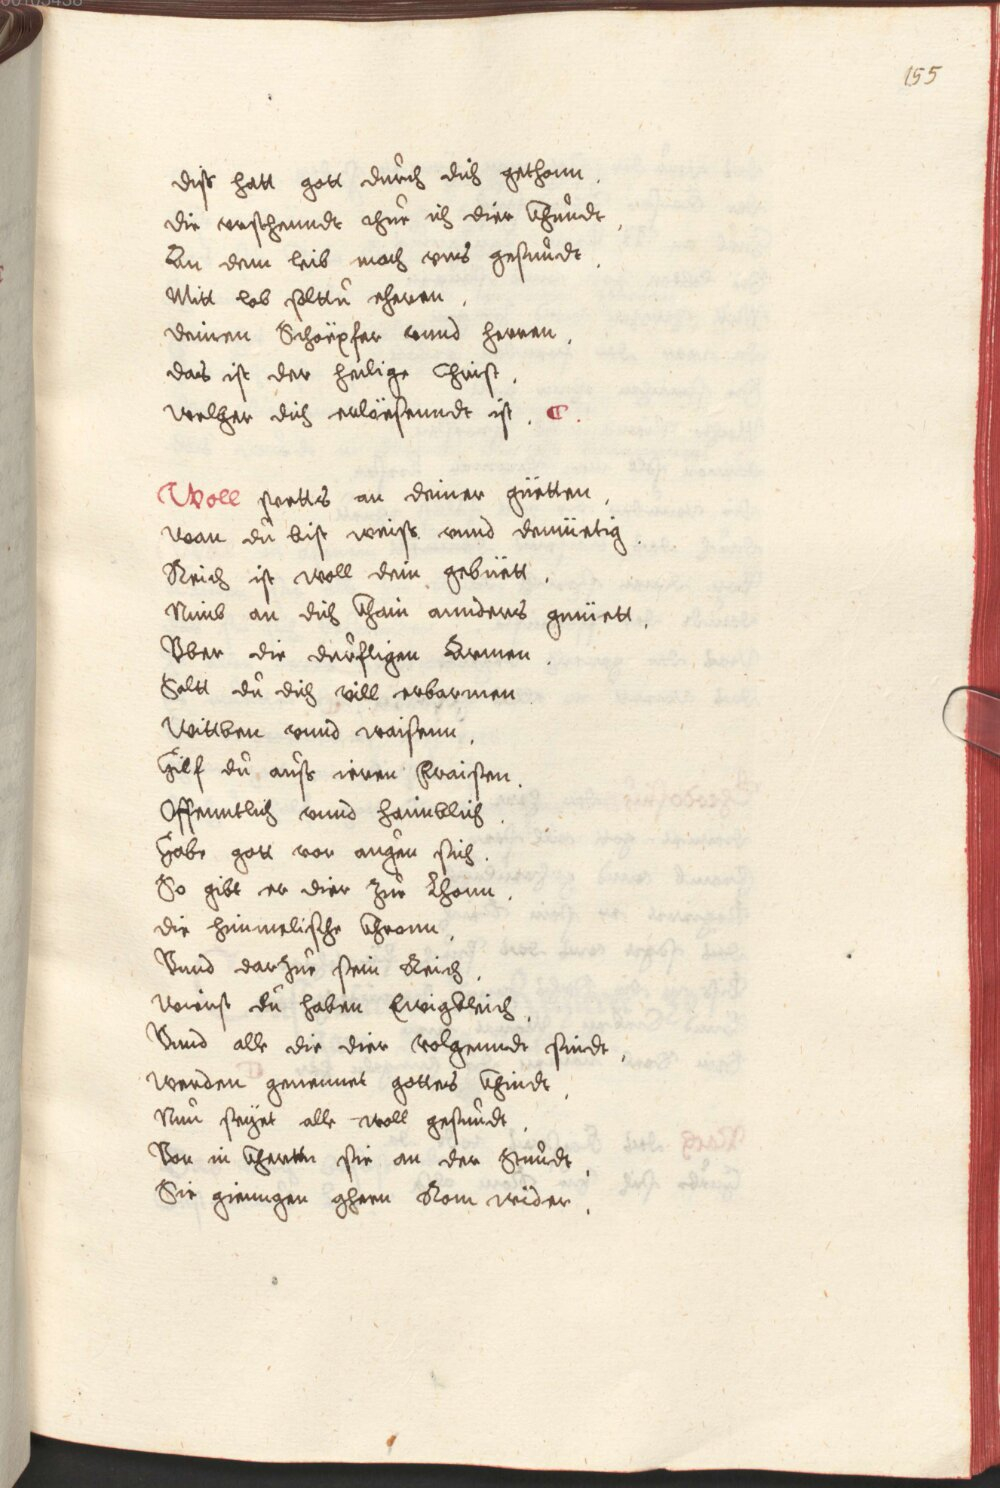 155
diß hatt gott durch dich gethonn.
die vrschenndt thue ich dier khundt,
An dem leib mach vns gesundt.
Mitt lob soltu eheren,
deinen Schöpfer vnnd herren.
das ist der heilige Christ,
welher dich erlösenndt ist. C.
Woll stetts an deiner güetten,
wan du bist weiß vnnd demüetig.
Reich ist woll dein gebüett,
Nimb an dich khain annders gmüett.
Vber die durfftigen Armen.
Soltt du dich vill erbarmen
Wittben vnnd waisenn,
Hilf du auß ieren fraisen.
Offenntlich vnnd haimblich.
Habe gott vor augen sich.
So gibt er dier zue Lhonn.
die himmelische Chronn,
Vnnd darzue sein Reich,
wierst du haben Ewigkleich,
Vnnd alle die dier volgenndt sindt,
werden genennet gottes khindt,
Nun seyet alle woll gesundt,
Von in kherten sie an der Stundt,
Sie giengen ghenn Rom wider,